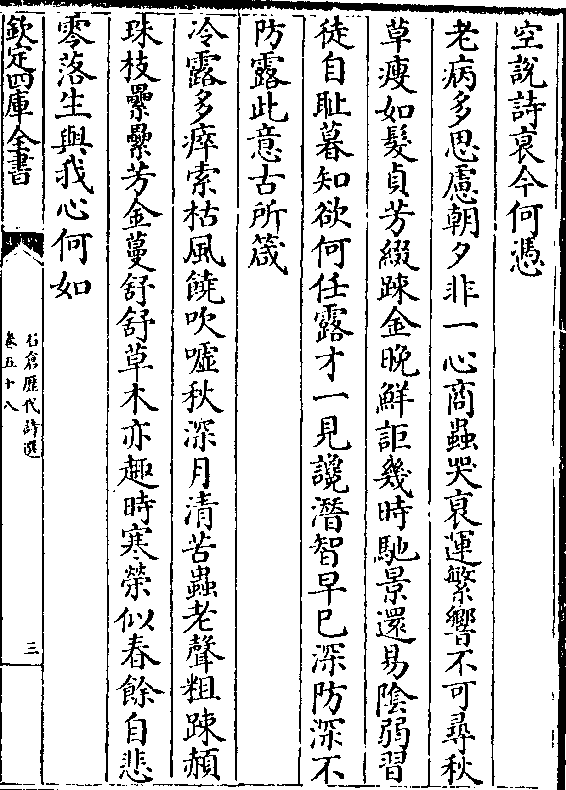 空說詩裒今何憑
老病多思慮朝夕非一心商蟲哭衰運繁響不可尋秋
草瘦如髮貞芳綴踈金晚鮮詎幾時馳景還易陰弱習
徒自恥暮知欲何任露才一見讒潛智早已深防深不
防露此意古所箴
冷露多瘁索枯風饒吹噓秋深月清苦蟲老聲粗踈頳
珠枝纍纍芳金蔓舒舒草木亦趣時寒榮似春餘自悲
零落生與我心何如
欽定四庫全書
石倉歷代詩選
卷五十八
三